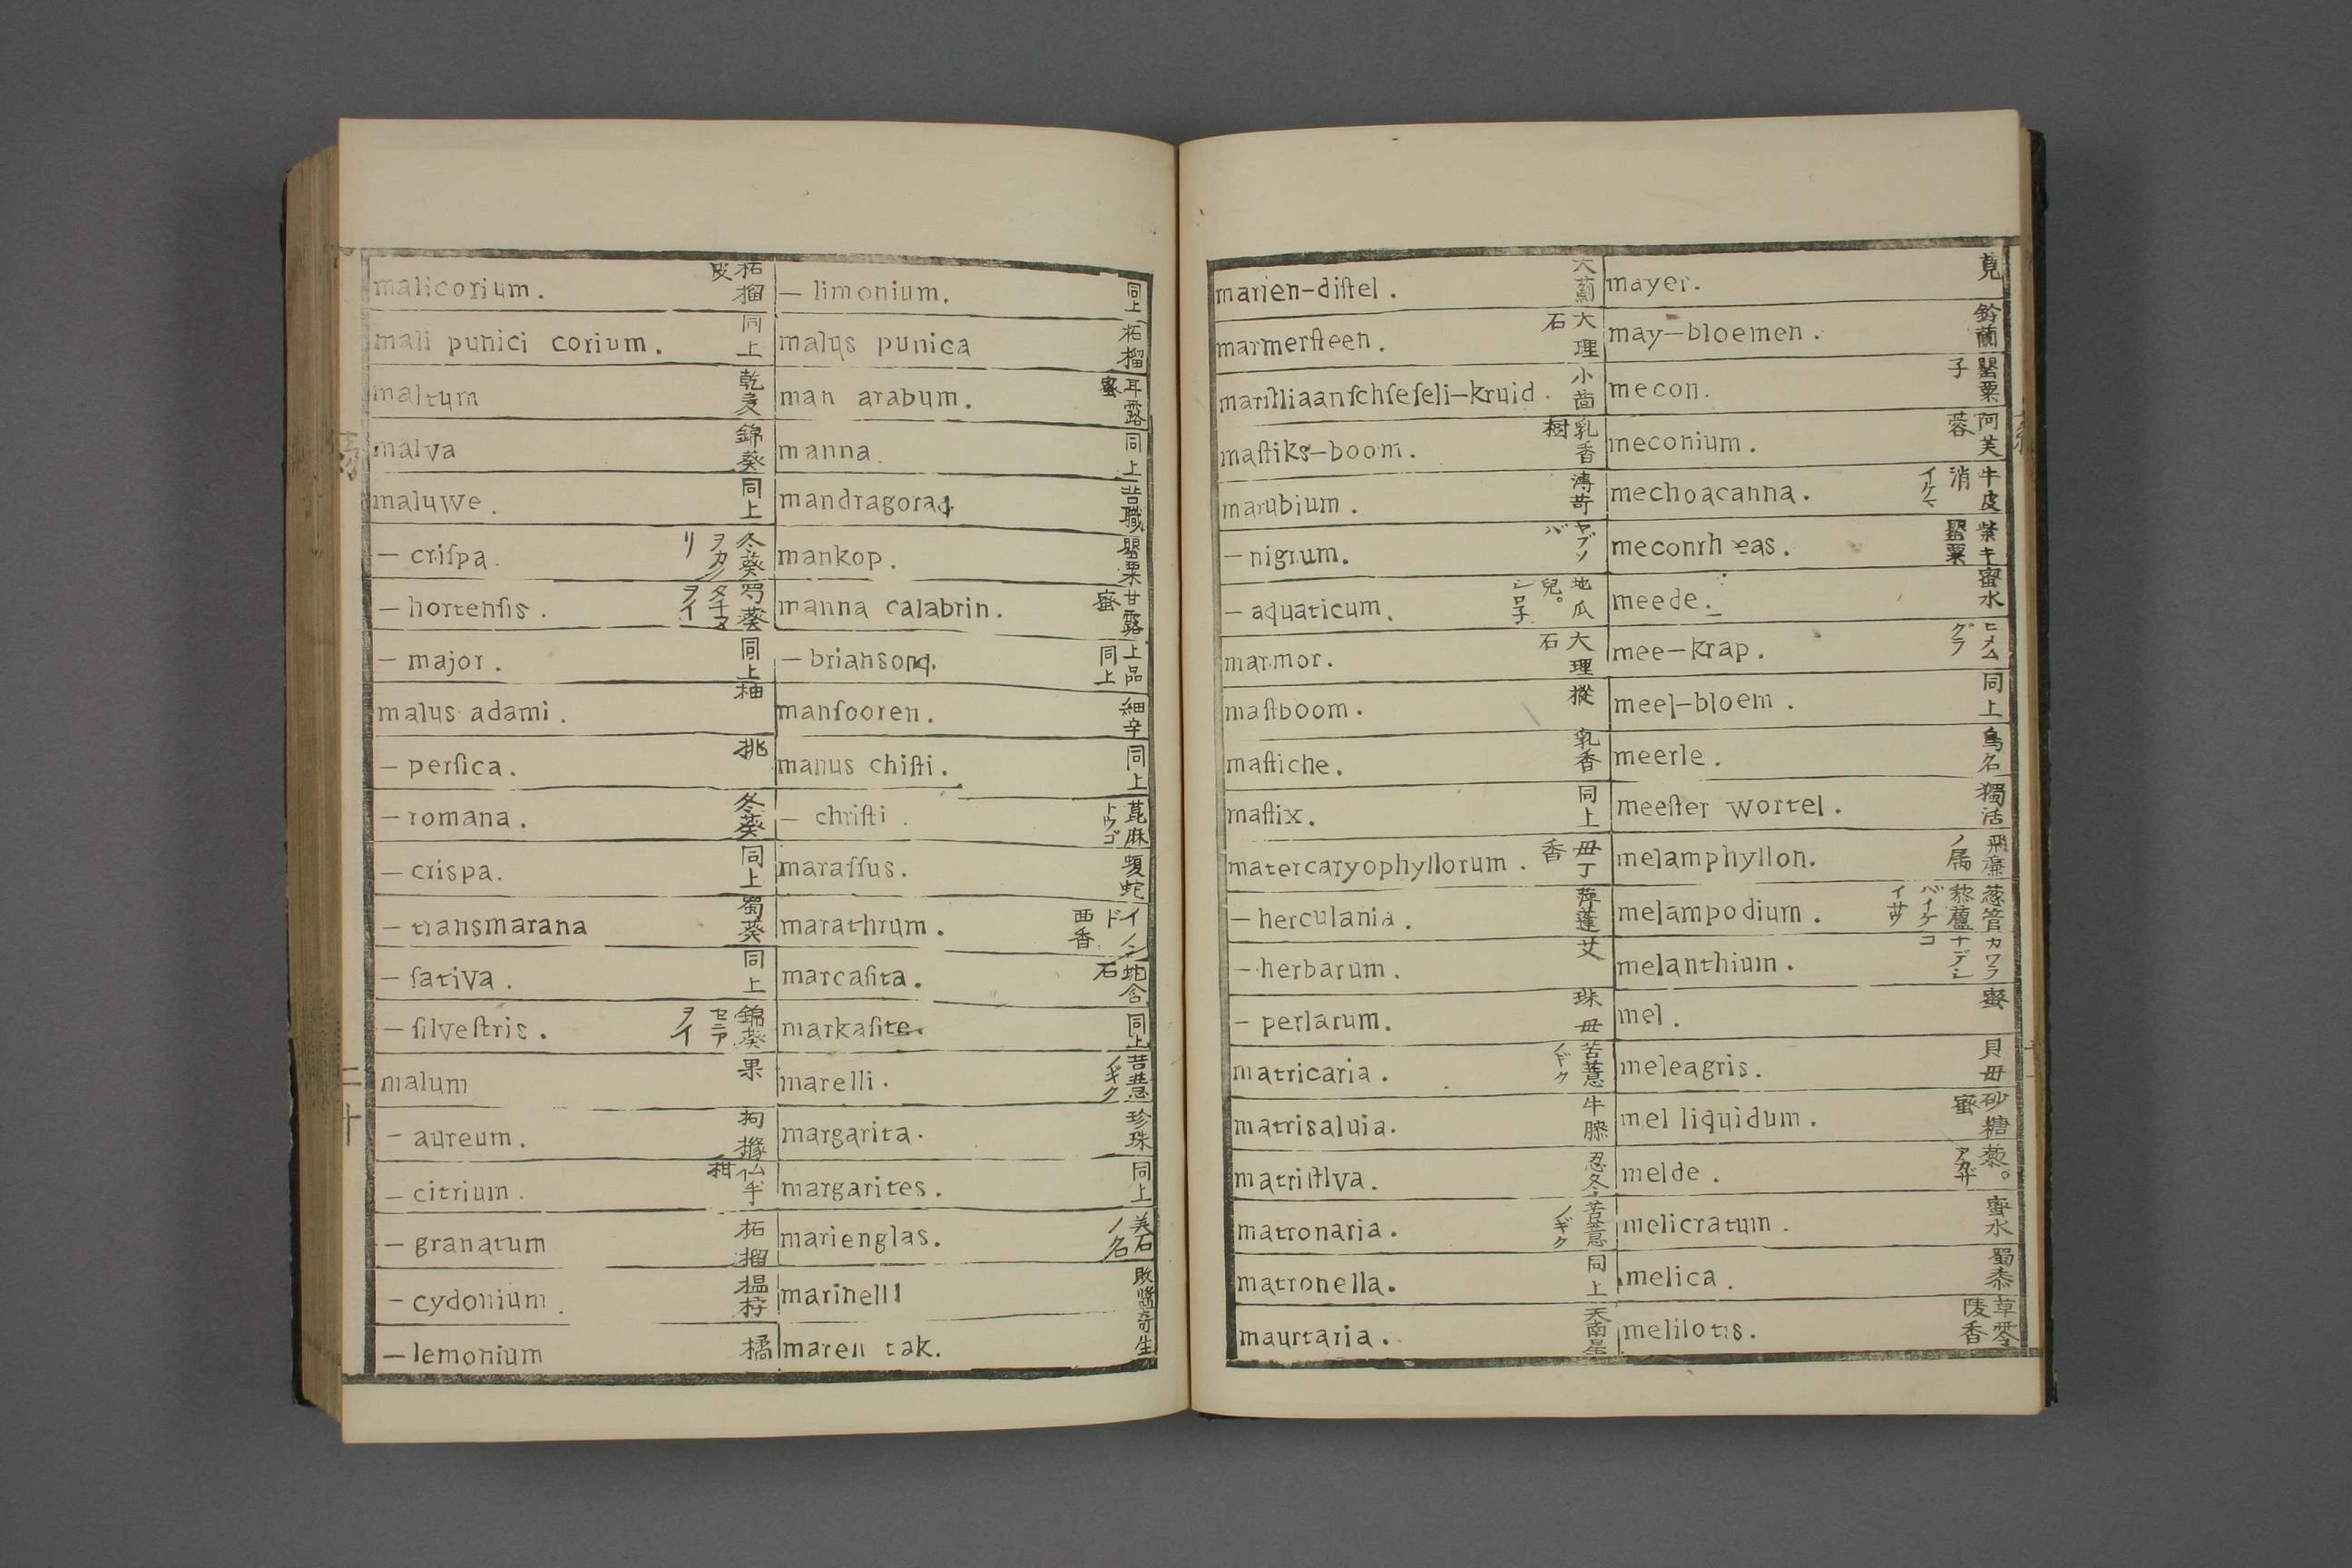 malicorium. 柘榴皮
mali punici corium. 同上
maltum 乾麦
malva 錦葵
maluwe. 同上
— criſpa. 冬葵 ヲカノリ
— hortenſis. 蜀葵 タチアヲイ
— major. 同上
malus adami. 柚
— perſica. 桃
— romana. 冬葵
— crispa. 同上
— transmarana 蜀葵
— ſativa. 同上
— ſilveſtris. 錦葵 セニアヲイ
malum 果
— aureum. 拘櫞
— citrium. 仏手柑
— granatum 柘榴
— cydonium. 榲桲
— lemonium 橘
— limonium. 同上
malus punica 柘榴
man arabum. 耳露蜜
manna. 同上
mandragora
mankop. 罌栗
manna calabrin. 甘露蜜
— brianson 上品同上
manſooren. 細辛
manus chiſti. 同上
— chriſti. 萞麻 トウゴ
maraſſus. 蝮蛇
marathrum. イノンド 西香
marcaſita. 蛇含石
markaſite. 同上
marelli. 苦薏 ノギク
margarita. 珍珠
margarites. 同上
marienglas. 美石ノ名
marinelll 敗醬
maren tak. 寄生
marien-diſtel. 大薊
marmerſteen. 大理石
marſiliaanſchſeſeli-kruid. 小茴
maſtiks-boom. 乳香樹
marubium.
— nigrum. ヤブソバ
— aquaticum. 地瓜兒。シロ子
marmor. 大理石
maſtboom. 樅
maſtiche. 乳香
maſtix. 同上
matercaryophyllorum. 母丁香
— herculania. 萍蓬
— herbarum. 艾
— perlarum. 珠母
matricaria. 苦薏 ノギク
matrisaluia. 牛膝
matriſilva. 忍冬
matronaria. 苦薏 ノギク
matronella. 同上
maurtaria. 天南星
mayer. 莧
may-bloemen. 鈴蘭
mecon. 罌粟子
meconium. 阿芙蓉
mechoacanna. 牛皮消 イケマ
meconrhœas. 罌粟
meede. 蜜水
mee-krap. ヒメムグラ
meel-bloem. 同上
meerle. 鳥名
meeſter wortel. 獨活
melamphyllon. 飛廉ノ属
melampodium. 葱管藜蘆 バイケイサウ
melanthium. カワラナデシコ
mel. 蜜
meleagris. 貝母
mel liquidum. 砂糖蜜
melde. 藜。アカザ
melicratum. 蜜水
melica. 蜀黍
melilotis. 草零陵香
二十